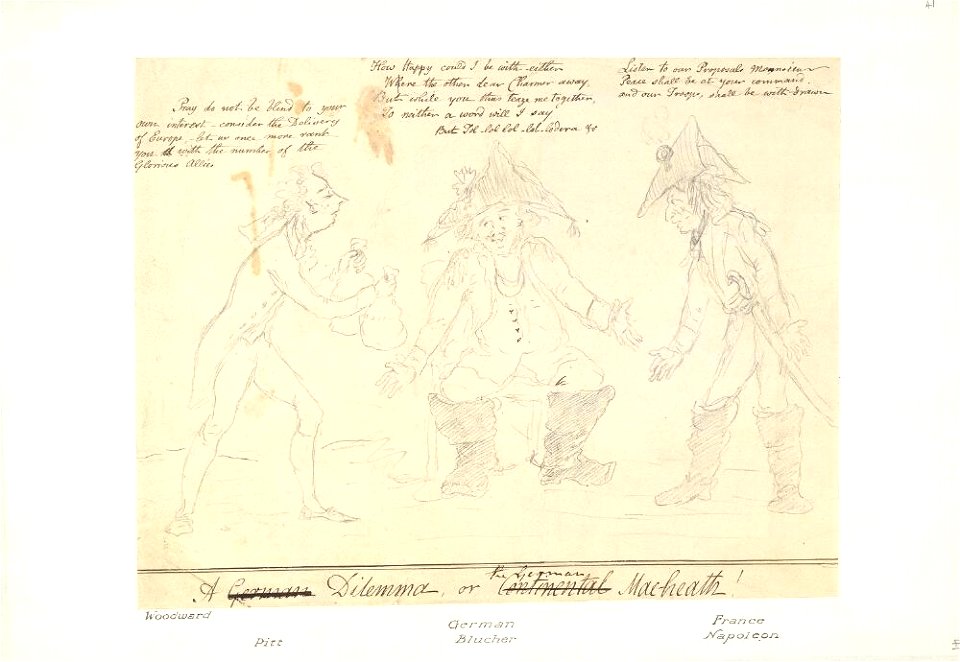 41
How Happy could I be with either
Where the other dear Charmer away
But while you thus teaze me together,
To neither a word will I say
But Tol-lol-lol-lol-lodera &c
Listen to our Proposals Monsieur
Peace shall be at your command
and our Troops, shall be withdrawn
Pray do not be blind to your
own interest - consider the Delivery
of Europe - let us once more
you with the number of the
Glorious Allies
the German
A German Dilemma, or Continental Macheath!
Woodward
Pitt
German
Blucher
France
Napoleon